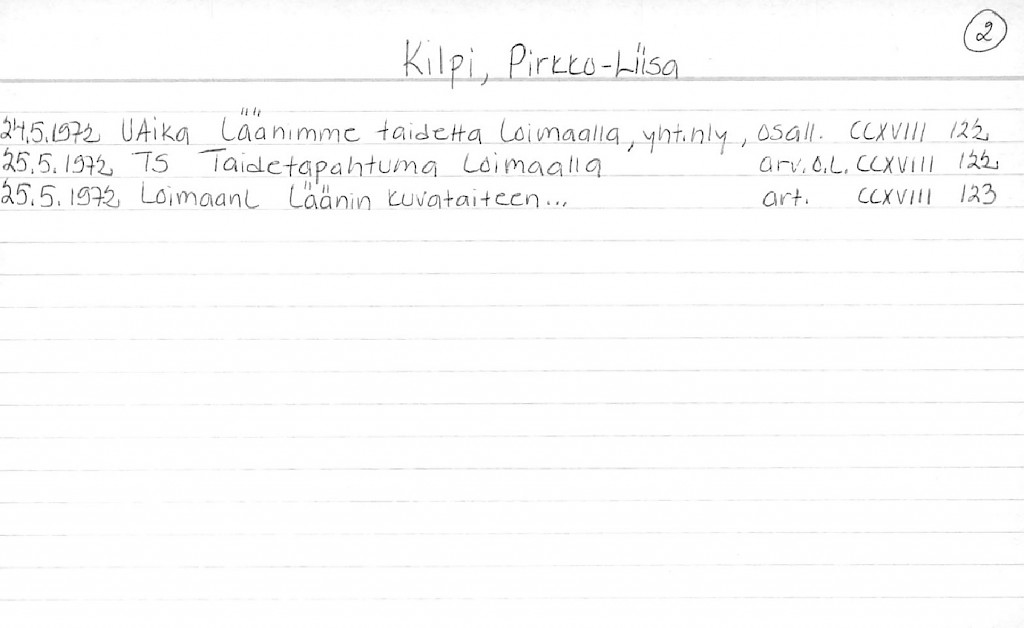 2
Kilpi, Pirkko-Liisa
24.5.1972 UAika Läänimme taidetta Loimaalla, yht.nly, osall. CCXVIII 122
25.5.1972 TS Taidetapahtuma Loimaalla arv. O.L. CCXVIII 122
25.5.1972 LoimaanL Läänin kuvataiteen... art. CCXVIII 123